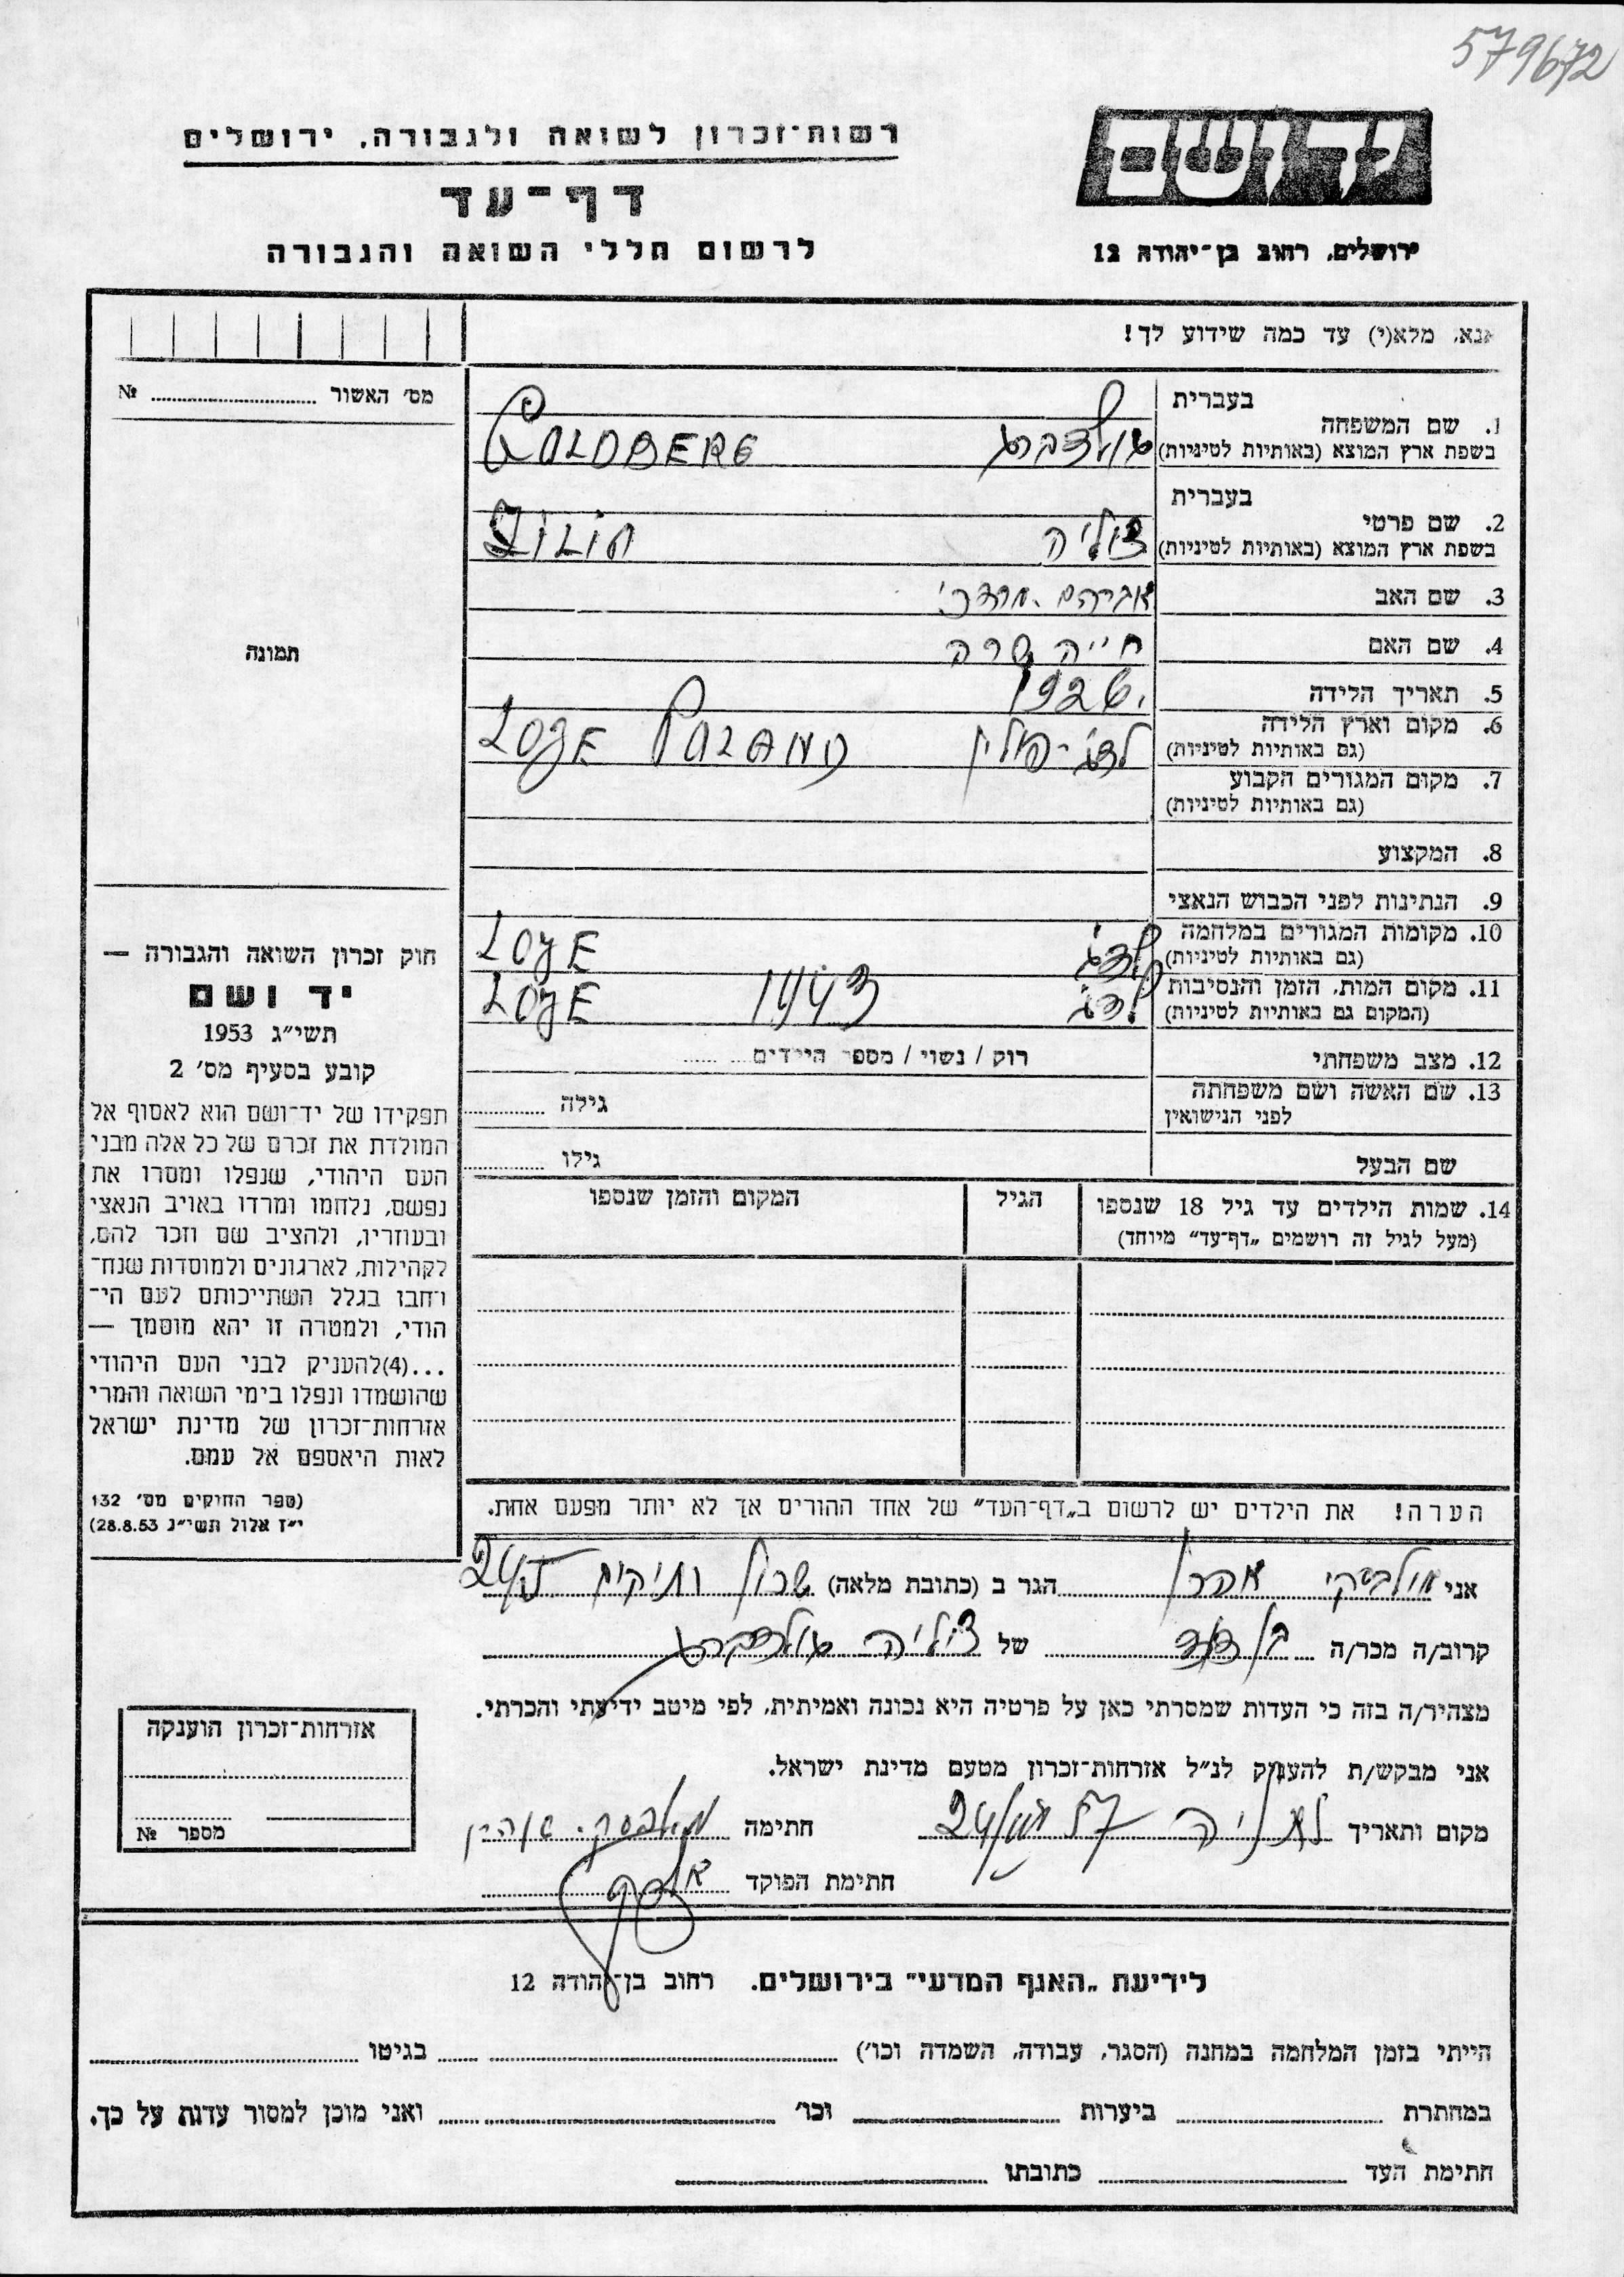 579672
יד ושם
ירושלים, רחוב בן־יהודה 12
רשות־זכרון לשואה ולגבורה, ירושלים
דף־עד
לרשום חללי השואה והגבורה
אנא, מלא(י) עד כמה שידוע לך!
מס׳ האשור № 
תמונה
1. שם המשפחה בעברית
בשפת ארץ המוצא (באותיות לטיניות) גולדברג GOLDBERG
2. שם פרטי בעברית
בשפת ארץ המוצא (באותיות לטיניות) ציליה
3. שם האב אברהם מרדכי
4. שם האם חייה שרה
5. תאריך הלידה 1926
6. מקום וארץ הלידה
(גם באותיות לטיניות) לדג׳ - פולין LOJE POLAND
7. מקום המגורים הקבוע
(גם באותיות לטיניות)
8. המקצוע
9. הנתינות לפני הכבוש הנאצי
10. מקומות המגורים במלחמה
(גם באותיות לטיניות) לדג׳ LOJE
11. מקום המות, הזמן והנסיבות
(המקום גם באותיות לטיניות) לדג׳ 1943 LOJE
12. מצב משפחתי רוק / נשוי / מספר הילדים
13. שם האשה ושם משפחתה
לפני הנישואין גילה
שם הבעל גילו
14. שמות הילדים עד גיל 18 שנספו הגיל המקום והזמן שנספו
(מעל לגיל זה רושמים „דף־עד״ מיוחד)
הערה! את הילדים יש לרשום ב„דף־העד״ של אחד ההורים אך לא יותר מפעם אחת.
חוק זכרון השואה והגבורה —
יד ושם
תשי״ג 1953
קובע בסעיף מס׳ 2
תפקידו של יד־ושם הוא לאסוף אל
המולדת את זכרם של כל אלה מבני
העם היהודי, שנפלו ומסרו את
נפשם, נלחמו ומרדו באויב הנאצי
ובעוזריו, ולהציב שם וזכר להם,
לקהילות, לארגונים ולמוסדות שנח־
רחבו בגלל השתייכותם לעם הי־
הודי, ולמטרה זו יהא מוסמך —
...(4)להעניק לבני העם היהודי
שהושמדו ונפלו בימי השואה והמרי
אזרחות־זכרון של מדינת ישראל
לאות היאספם אל עמם.
(ספר החוקים מס׳ 132
י״ז אלול תשי״ג 28.8.53)
אני אהרן הגר ב (כתובת מלאה) שכון ותיקים
קרוב/ה מכר/ה בן דוד של ציליה גולדברג
מצהיר/ה בזה כי העדות שמסרתי כאן על פרטיה היא נכונה ואמיתית, לפי מיטב ידיעתי והכרתי.
אני מבקש/ת להעניק לנ״ל אזרחות־זכרון מטעם מדינת ישראל.
מקום ותאריך נתניה חתימה
חתימת הפוקד
אזרחות־זכרון הוענקה
מספר №
לידיעת „האגף המדעי״ בירושלים. רחוב בן־יהודה 12
הייתי בזמן המלחמה במחנה (הסגר, עבודה, השמדה וכו׳) בגיטו
במחתרת ביערות וכו׳ ואני מוכן למסור עדות על כך.
חתימת העד כתובתו